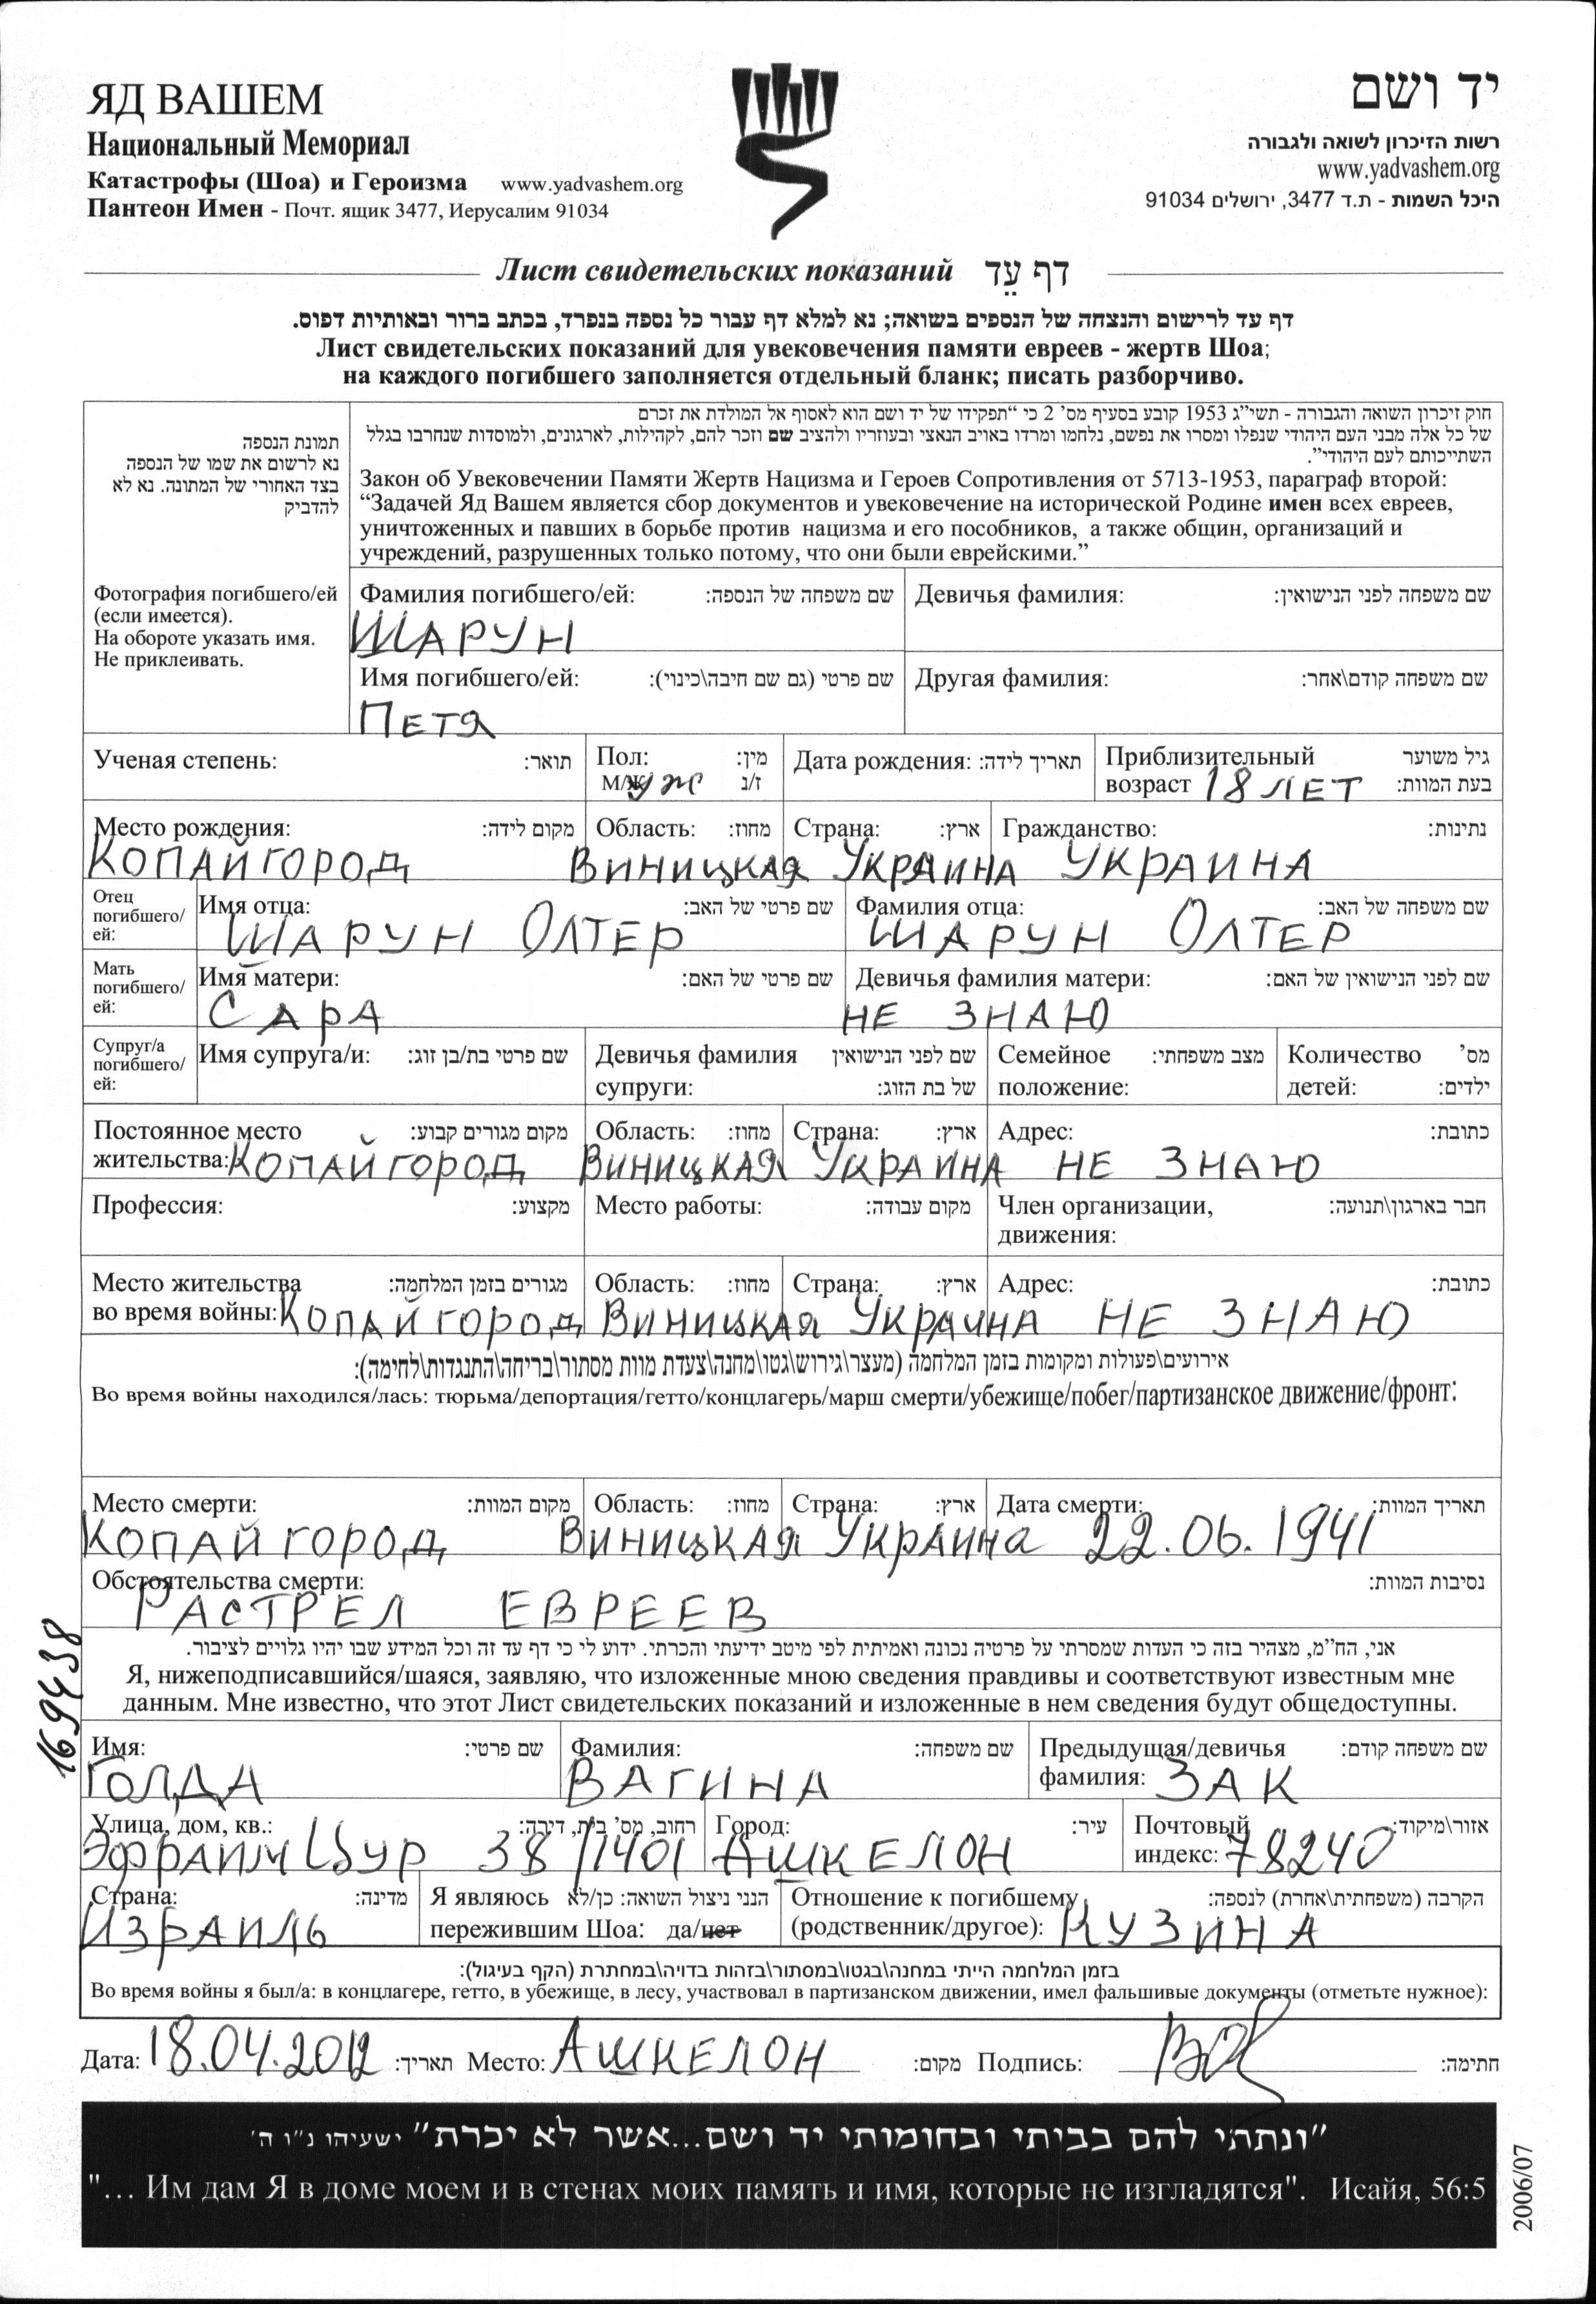 ЯД ВАШЕМ
Национальный Мемориал
Катастрофы (Шоа) и Героизма www.yadvashem.org
Пантеон Имен - Почт. ящик 3477, Иерусалим 91034
יד ושם
רשות הזיכרון לשואה ולגבורה
www.yadvashem.org
היכל השמות - ת.ד 3477, ירושלים 91034
Лист свидетельских показаний דף עֵד
דף עד לרישום והנצחה של הנספים בשואה; נא למלא דף עבור כל נספה בנפרד, בכתב ברור ובאותיות דפוס.
Лист свидетельских показаний для увековечения памяти евреев - жертв Шоа;
на каждого погибшего заполняется отдельный бланк; писать разборчиво.
תמונת הנספה
נא לרשום את שמו של הנספה
בצד האחורי של המתונה. נא לא
להדביק
חוק זיכרון השואה והגבורה - תשי"ג 1953 קובע בסעיף מס' 2 כי "תפקידו של יד ושם הוא לאסוף אל המולדת את זכרם
של כל אלה מבני העם היהודי שנפלו ומסרו את נפשם, נלחמו ומרדו באויב הנאצי ובעוזריו ולהציב שם וזכר להם, לקהילות, לארגונים, ולמוסדות שנחרבו בגלל
השתייכותם לעם היהודי".
Закон об Увековечении Памяти Жертв Нацизма и Героев Сопротивления от 5713-1953, параграф второй:
"Задачей Яд Вашем является сбор документов и увековечение на исторической Родине имен всех евреев,
уничтоженных и павших в борьбе против нацизма и его пособников, а также общин, организаций и
учреждений, разрушенных только потому, что они были еврейскими."
Фотография погибшего/ей
(если имеется).
На обороте указать имя.
Не приклеивать.
Фамилия погибшего/ей: שם משפחה של הנספה: Девичья фамилия: שם משפחה לפני הנישואין:
ШАРУН
Имя погибшего/ей: שם פרטי (גם שם חיבה\כינוי): Другая фамилия: שם משפחה קודם\אחר:
ПЕТЯ
Ученая степень: תואר: Пол: מין: Дата рождения: תאריך לידה: Приблизительный גיל משוער
М/Ж уж ז/נ возраст 18 ЛЕТ בעת המוות:
Место рождения: מקום לידה: Область: מחוז: Страна: ארץ: Гражданство: נתינות:
КОПАЙГОРОД ВИНИЦКАЯ УКРАИНА УКРАИНА
Отец погибшего/ей: Имя отца: שם פרטי של האב: Фамилия отца: שם משפחה של האב:
ШАРУН ОЛТЕР ШАРУН ОЛТЕР
Мать погибшего/ей: Имя матери: שם פרטי של האם: Девичья фамилия матери: שם לפני הנישואין של האם:
САРА НЕ ЗНАЮ
Супруг/а погибшего/ей: Имя супруга/и: שם פרטי בת/בן זוג: Девичья фамилия שם לפני הנישואין Семейное מצב משפחתי: Количество מס'
супруги: של בת הזוג: положение: детей: ילדים:
Постоянное место מקום מגורים קבוע: Область: מחוז: Страна: ארץ: Адрес: כתובת:
жительства: КОПАЙГОРОД ВИНИЦКАЯ УКРАИНА НЕ ЗНАЮ
Профессия: מקצוע: Место работы: מקום עבודה: Член организации, חבר בארגון\תנועה:
движения:
Место жительства מגורים בזמן המלחמה: Область: מחוז: Страна: ארץ: Адрес: כתובת:
во время войны: КОПАЙГОРОД ВИНИЦКАЯ УКРАИНА НЕ ЗНАЮ
אירועים\פעולות ומקומות בזמן המלחמה (מעצר\גירוש\גטו\מחנה\צעדת מוות מסתור\בריחה\התנגדות\לחימה):
Во время войны находился/лась: тюрьма/депортация/гетто/концлагерь/марш смерти/убежище/побег/партизанское движение/фронт:
Место смерти: מקום המוות: Область: מחוז: Страна: ארץ: Дата смерти: תאריך המוות:
КОПАЙГОРОД ВИНИЦКАЯ УКРАИНА 22.06.1941
Обстоятельства смерти: נסיבות המוות:
РАСТРЕЛ ЕВРЕЕВ
169438
אני, הח"מ, מצהיר בזה כי העדות שמסרתי על פרטיה נכונה ואמיתית לפי מיטב ידיעתי והכרתי. ידוע לי כי דף עד זה וכל המידע שבו יהיו גלויים לציבור.
Я, нижеподписавшийся/шаяся, заявляю, что изложенные мною сведения правдивы и соответствуют известным мне
данным. Мне известно, что этот Лист свидетельских показаний и изложенные в нем сведения будут общедоступны.
Имя: שם פרטי: Фамилия: שם משפחה: Предыдущая/девичья שם משפחה קודם:
ГОЛДА ВАГИНА фамилия: ЗАК
Улица, дом, кв.: רחוב, מס' בית, דירה: Город: עיר: Почтовый אזור\מיקוד:
ЭФРАИМ ЦУР 38/1401 АШКЕЛОН индекс: 78240
Страна: מדינה: Я являюсь הנני ניצול השואה: כן/לא Отношение к погибшему הקרבה (משפחתית\אחרת) לנספה:
ИЗРАИЛЬ пережившим Шоа: да/нет (родственник/другое): КУЗИНА
בזמן המלחמה הייתי במחנה\בגטו\במסתור\בזהות בדויה\במחתרת (הקף בעיגול):
Во время войны я был/а: в концлагере, гетто, в убежище, в лесу, участвовал в партизанском движении, имел фальшивые документы (отметьте нужное):
Дата: 18.04.2012 תאריך: Место: АШКЕЛОН מקום: Подпись: חתימה:
"ונתתי להם בביתי ובחומותי יד ושם...אשר לא יכרת" ישעיהו נ"ו ה'
"... Им дам Я в доме моем и в стенах моих память и имя, которые не изгладятся". Исайя, 56:5
2006/07